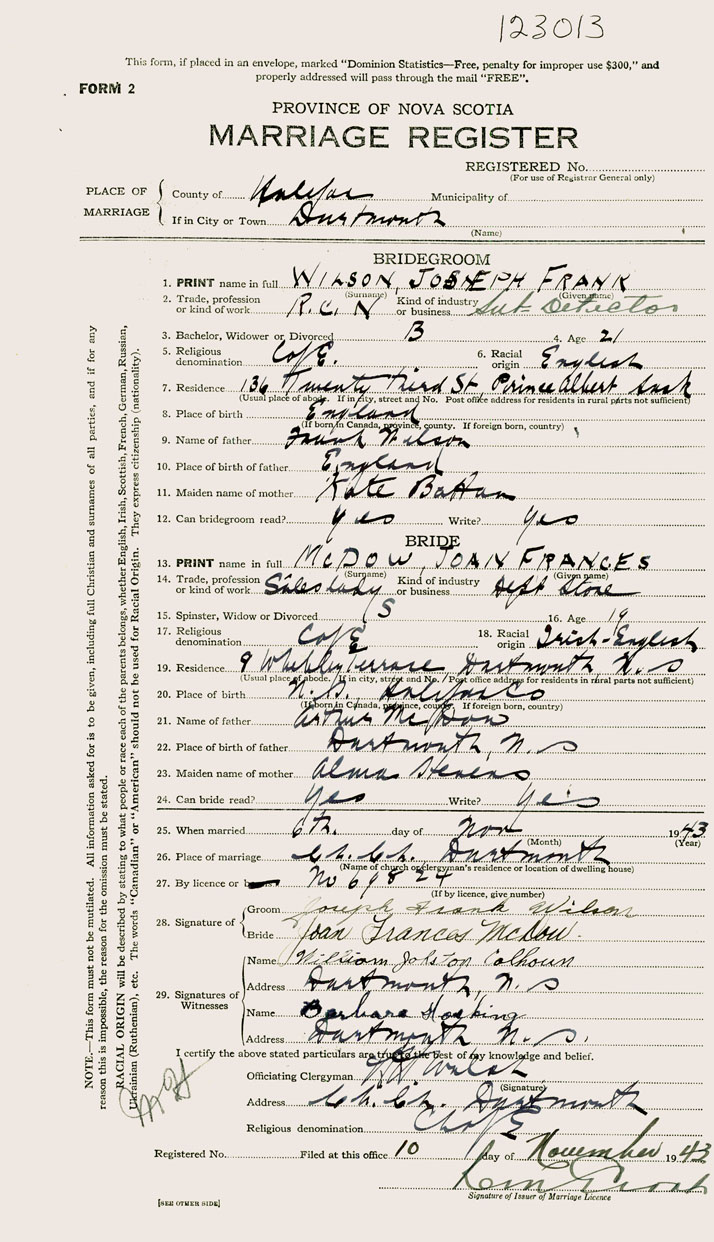 123013
This form, if placed in an envelope, marked "Dominion Statistics—Free, penalty for improper use $300," and
properly addressed will pass through the mail "FREE".
FORM 2
PROVINCE OF NOVA SCOTIA
MARRIAGE REGISTER
REGISTERED No.
(For use of Registrar General only)
PLACE OF MARRIAGE
County of Halifax Municipality of
If in City or Town Dartmouth
(Name)
BRIDEGROOM
1. PRINT name in full WILSON, JOSEPH FRANK
(Surname) (Given name)
2. Trade, profession or kind of work R.C.N Kind of industry or business Sub-Detector
3. Bachelor, Widower or Divorced B 4. Age 21
5. Religious denomination C of E. 6. Racial origin English
7. Residence 136 Twenty Third St, Prince Albert Sask
(Usual place of abode. If in city, street and No. Post office address for residents in rural parts not sufficient)
8. Place of birth England
(If born in Canada, province, county. If foreign born, country)
9. Name of father Frank Wilson
10. Place of birth of father England
11. Maiden name of mother Kate
12. Can bridegroom read? yes Write? yes
BRIDE
13. PRINT name in full McDOW, JOAN FRANCES
(Surname) (Given name)
14. Trade, profession or kind of work Saleslady Kind of industry or business Dept Store
15. Spinster, Widow or Divorced S 16. Age 19
17. Religious denomination C of E 18. Racial origin Irish-English
19. Residence 9 Terrace Dartmouth, N.S
(Usual place of abode. If in city, street and No. Post office address for residents in rural parts not sufficient)
20. Place of birth Halifax Co
(If born in Canada, province, county. If foreign born, country)
21. Name of father Arthur McDow
22. Place of birth of father Dartmouth, N.S
23. Maiden name of mother Alma Stevens
24. Can bride read? yes Write? yes
25. When married 6th. day of Nov 1943
(Month) (Year)
26. Place of marriage Ch. Ch. Dartmouth
(Name of church or clergyman's residence or location of dwelling house)
27. By licence or No 69824
(If by licence, give number)
28. Signature of
Groom Joseph Frank Wilson
Bride Joan Frances McDow
29. Signatures of Witnesses
Name William Johston Calhoun
Address Dartmouth, N.S
Name Barbara Hosking
Address Dartmouth N.S.
I certify the above stated particulars are true to the best of my knowledge and belief.
Officiating Clergyman Walsh
(Signature)
Address Ch. Ch. Dartmouth
Religious denomination Ch of E
Registered No. Filed at this office 10 day of November 1943
Signature of Issuer of Marriage Licence
[SEE OTHER SIDE]
NOTE.—This form must not be mutilated. All information asked for is to be given, including full Christian and surnames of all parties, and if for any
reason this is impossible, the reason for the omission must be stated.
RACIAL ORIGIN will be described by stating to what people or race each of the parents belongs, whether English, Irish, Scottish, French, German, Russian,
Ukrainian (Ruthenian), etc. The words "Canadian" or "American" should not be used for Racial Origin. They express citizenship (nationality).